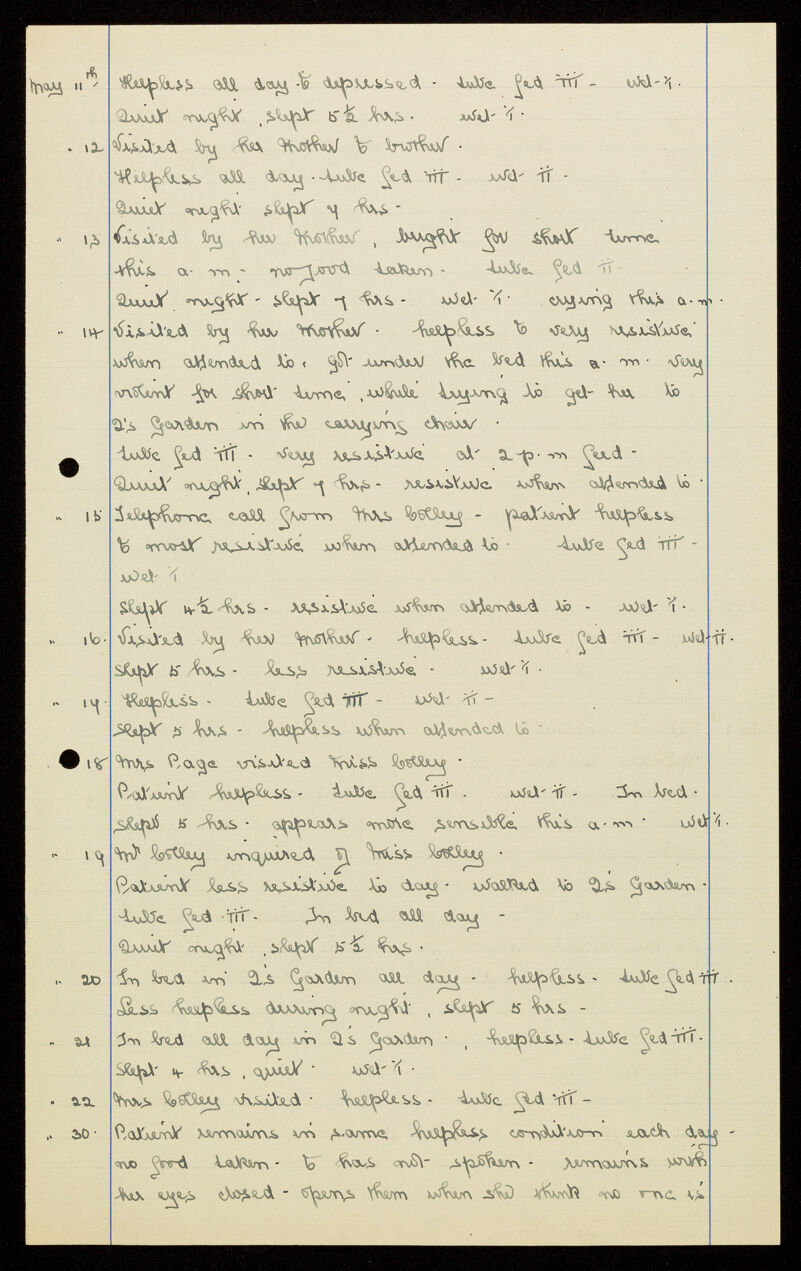 May 11th Helpless all day & depressed - tube fed III - wet - I.
Quiet night, slept 5½ hrs. wet - I.
" 12 Visited by her Mother & brother.
Helpless all day. tube fed III - wet - II -
Quiet night slept 7 hrs -
" 13 Visited by her Mother, bright for short time
this a.m. - no food taken - tube fed II
Quiet night - slept 7 hrs - wet - I. crying this a.m.
" 14 Visited by her Mother. helpless & very resistive
when attended to, got under the bed this a.m. very
violent for short time, while trying to get her to
Q's Garden in the carrying chair.
tube fed III - very resistive at 2 p.m feed -
Quiet night, slept 7 hrs - resistive when attended to.
" 15 Telephone call from Mrs Colley - patient helpless
& most resistive when attended to. tube fed III -
wet - I
Slept 4½ hrs - resistive when attended to - wet - I.
" 16. Visited by her Mother - helpless - tube fed III - wet - II.
slept 5 hrs - less resistive - wet - I.
" 17. Helpless - tube fed III - wet - II -
slept 5 hrs - helpless when attended to -
18 Mrs Page visited Miss Colley.
Patient helpless - tube fed III. wet - II - In bed.
slept 5 hrs. appears more sensible this a.m. wet I.
" 19 Mr Colley inquired of Miss Colley.
Patient less resistive to day. walked to Q's Garden.
tube fed III. In bed all day -
Quiet night, slept 5½ hrs.
" 20 In bed in Q's Garden all day - helpless - tube fed III.
Less helpless during night, slept 5 hrs -
" 21 In bed all day in Q's Garden., helpless - tube fed III.
Slept 4 hrs, quiet. wet - I.
" 22 Mrs Colley visited. helpless - tube fed III -
" 30. Patient remains in same helpless condition each day -
no food taken - & has not spoken - remains with
her eyes closed - opens them when she think no one is